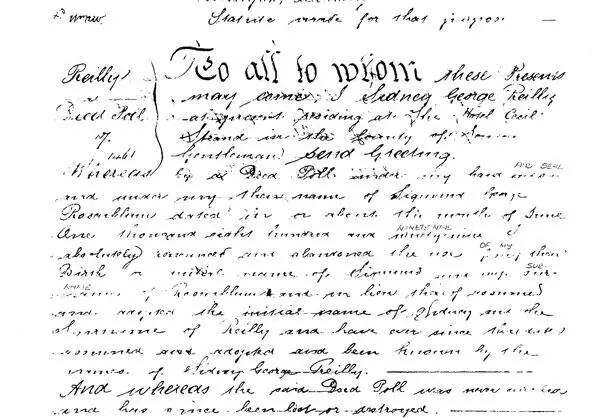 Statute made for that purpose —
Reilly
Deed Poll
To all to whom these Presents
may come, I Sidney George Reilly
at present residing at the Hotel Cecil
Strand in the County of
Gentleman Send Greeting.
AND SEAL
Whereas by a Deed Poll under my hand
and under my then name of Sigmund George
Rosenblum dated in or about the month of June
NINETY NINE
One thousand eight hundred and ninety-nine I
OF MY
absolutely renounced and abandoned the use of my then
SUR
Birth or initial name of Sigmund and my Sur-
NAME
name of Rosenblum and in lieu thereof assumed
and adopted the initial name of Sidney and the
Surname of Reilly and have ever since
assumed and adopted and been known by the
names of Sidney George Reilly.
And whereas the said Deed Poll was never
and has since been lost or destroyed.